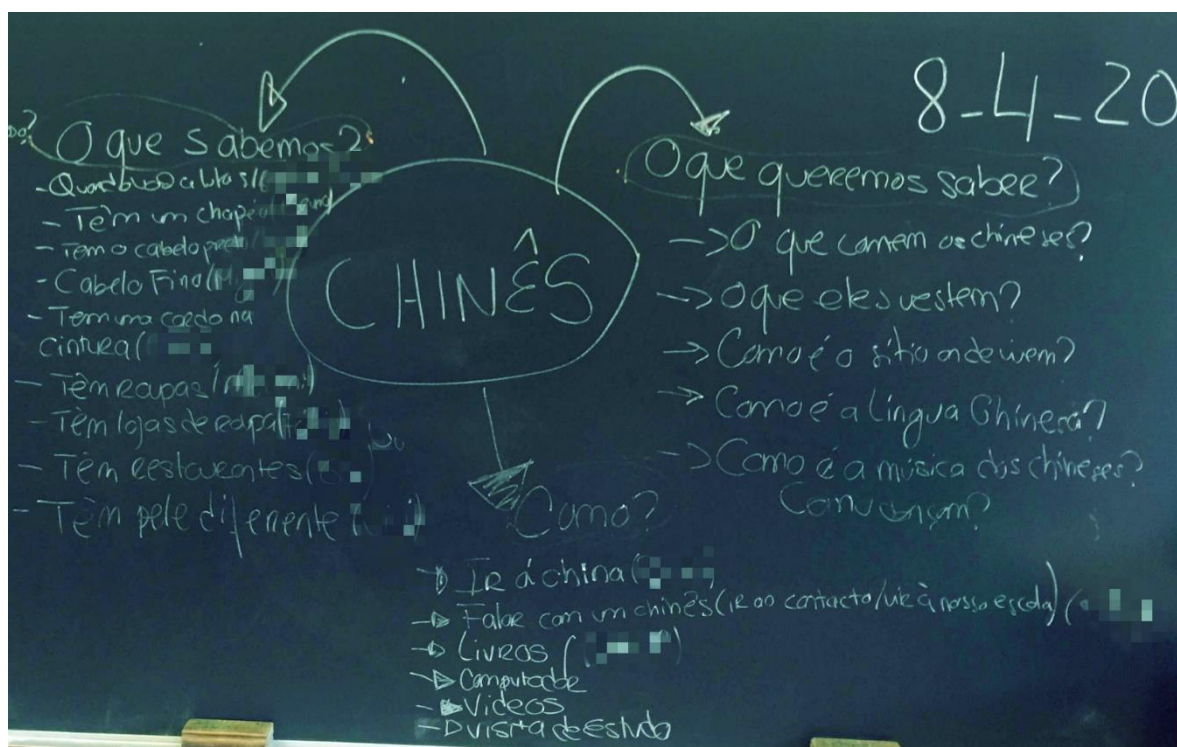 8-4-20
O que sabemos?
- Têm um
- Tem o cabelo
- Cabelo Fino
- Tem uma na
cintura
- Têm roupas
- Têm lojas de roupa
- Têm restaurantes
- Têm pele diferente
CHINÊS
O que queremos saber?
-> O que comem os chineses?
-> O que eles vestem?
-> Como é o sítio onde vivem?
-> Como é a língua Chinesa?
-> Como é a música dos chineses?
Como?
Ir á china
Falar com um chinês (ir ao contacto/vir à nossa escola)
Livros
Computador
Videos
visita de Estudo